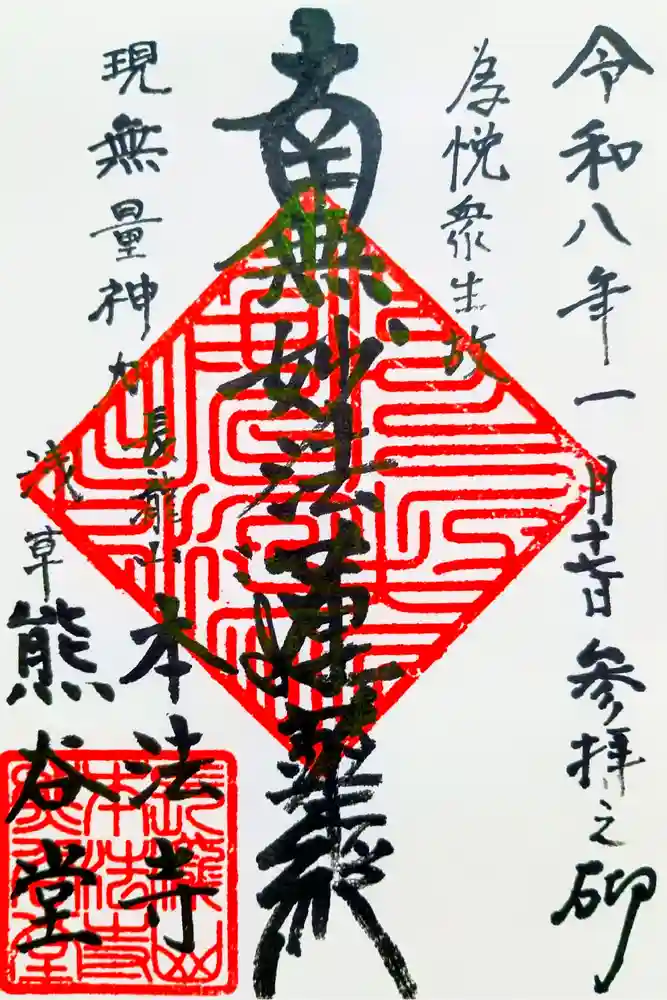 令和八年一月十七日参拝之砌
為悦衆生故
南無妙法蓮華経
現無量神力
長龍山
本法寺
浅草
熊谷堂